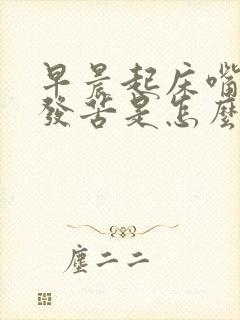 早晨起床嘴
發苦是怎麼
塵二二